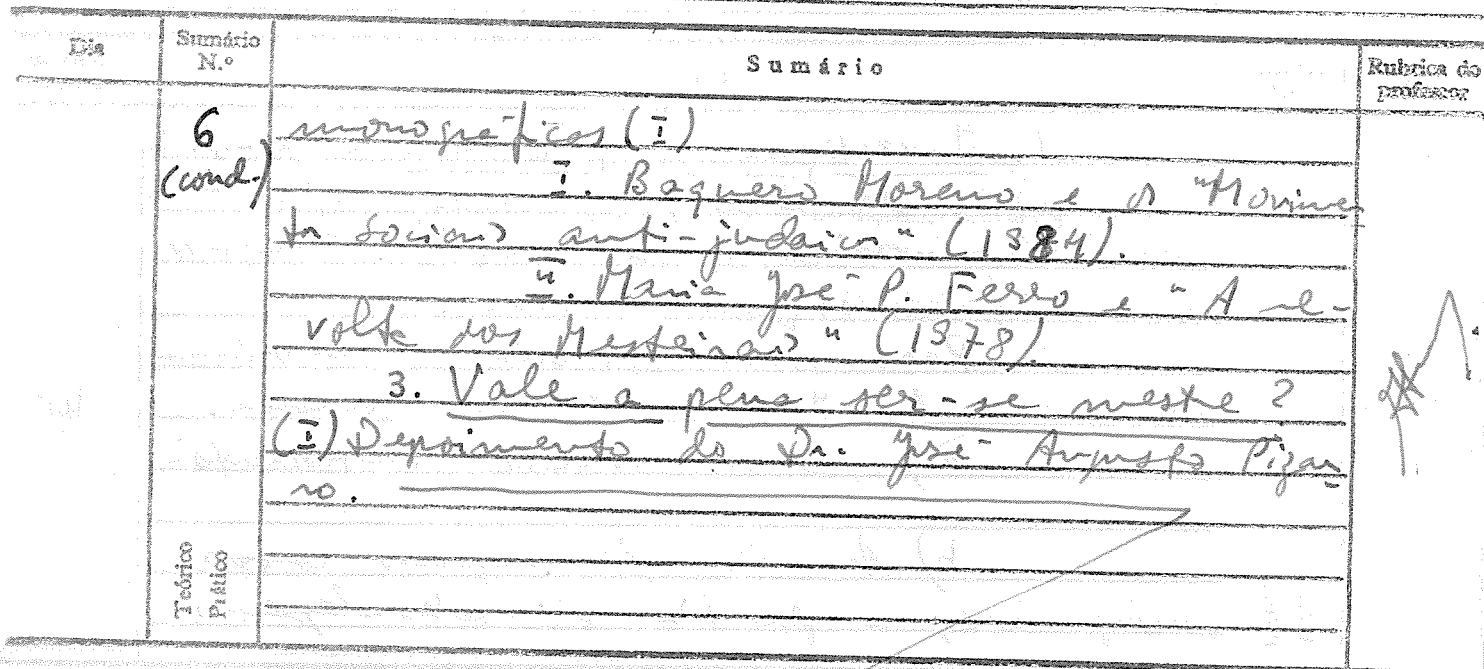 Dia
Sumário
N.º
Sumário
Rubrica do
professor
6
(cond.)
monográficos (I)
I. Baquero Moreno e os "Movimen
tos Sociais anti-judaicos" (1984).
II. Maria José P. Ferro e "A re-
volta dos Mesteirais" (1978).
3. Vale a pena ser-se mestre ?
(I) Depoimento do Dr. José Augusto Pizar
ro.
Teórico
Prático